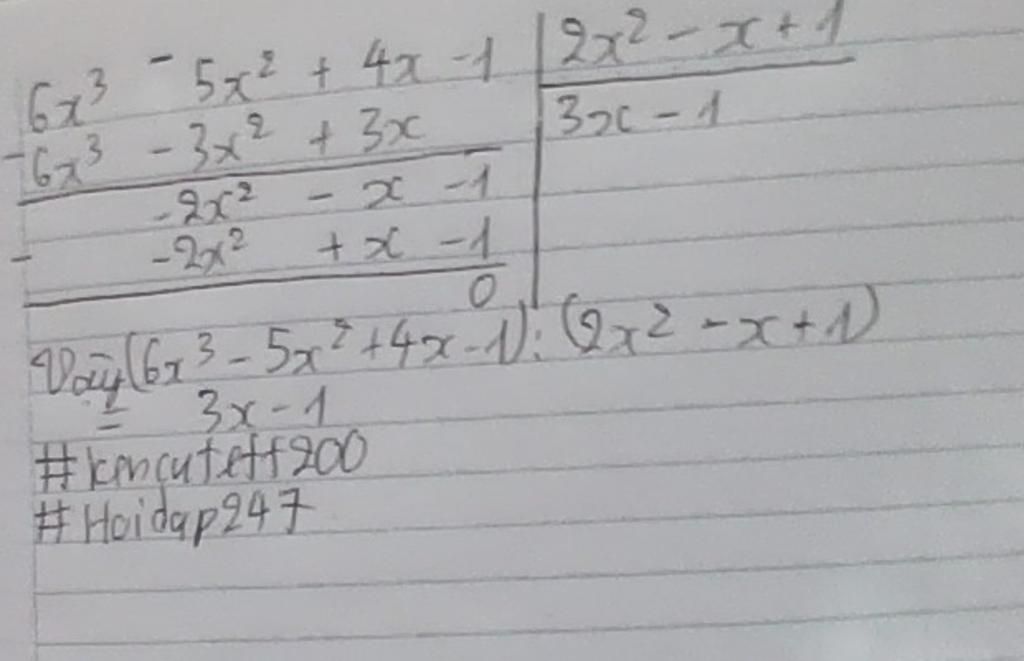 6x³ - 5x² + 4x - 1 | 2x² - x + 1
- 6x³ - 3x² + 3x | 3x - 1
-2x² - x - 1
- -2x² + x - 1
0
Vậy (6x³ - 5x² + 4x - 1) : (2x² - x + 1)
= 3x - 1
#kmcuteff200
#Hoidap247